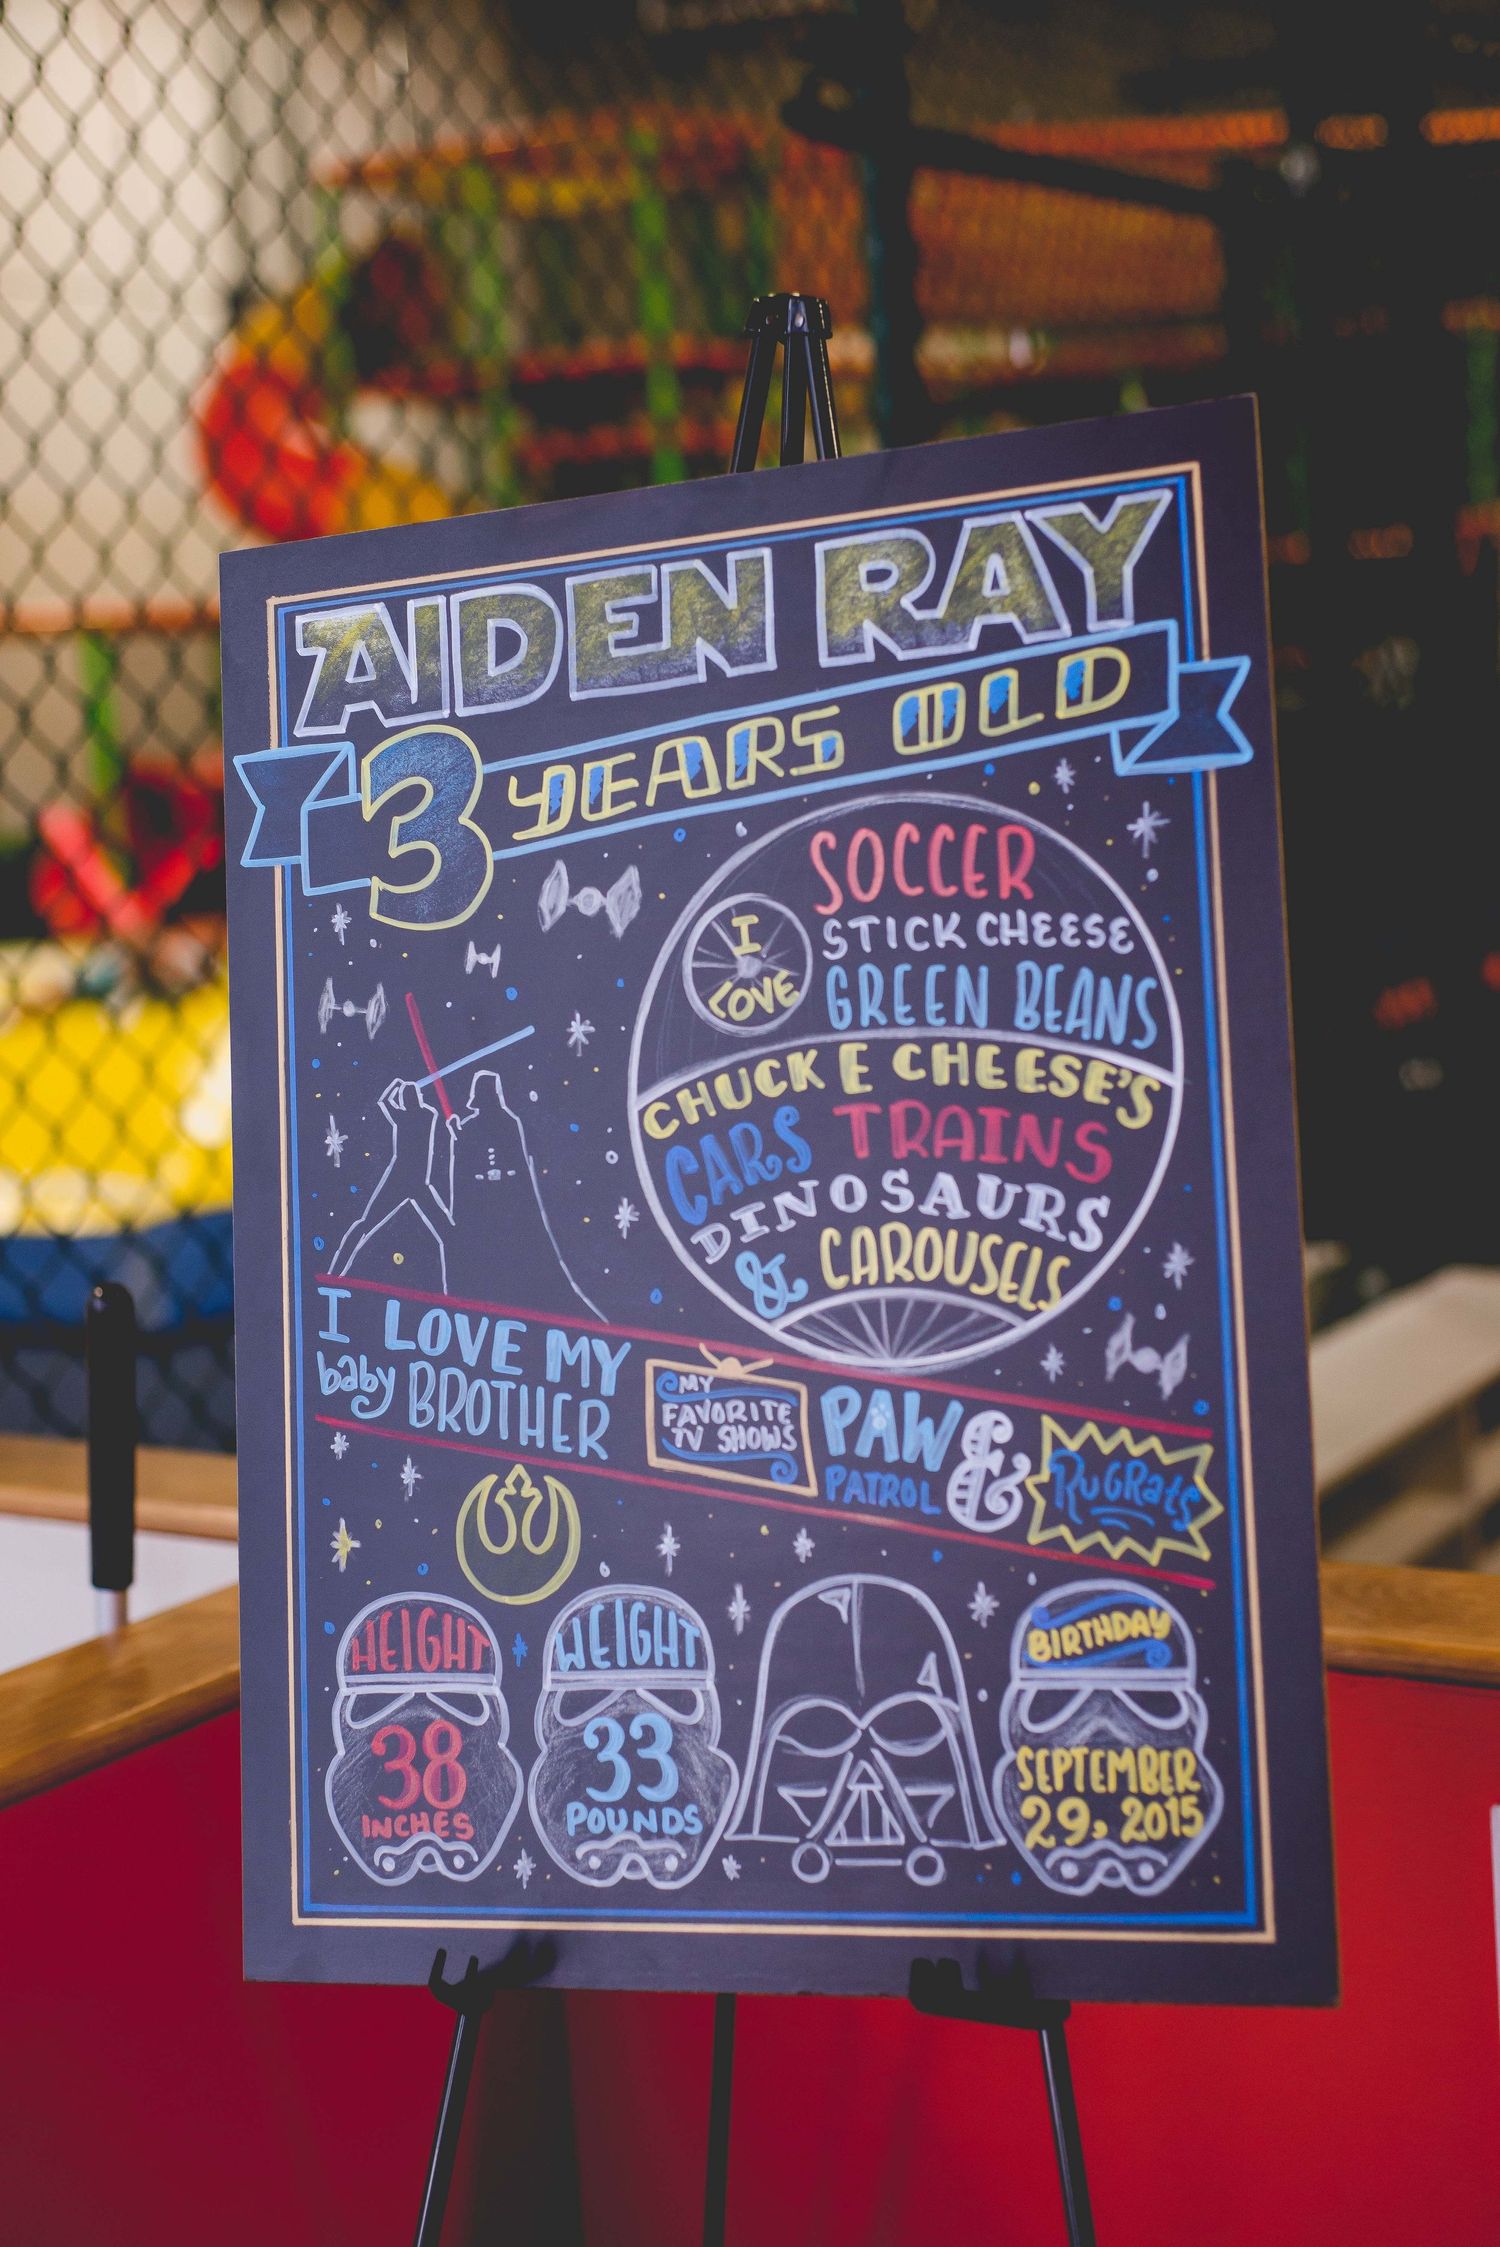 AIDEN RAY
3 YEARS OLD
I
LOVE
SOCCER
STICK CHEESE
GREEN BEANS
CHUCK E CHEESE'S
CARS TRAINS
DINOSAURS
& CAROUSELS
I LOVE MY
baby BROTHER
MY
FAVORITE
TV SHOWS
PAW
PATROL
&
RUGRATS
HEIGHT
38
INCHES
WEIGHT
33
POUNDS
BIRTHDAY
SEPTEMBER
29, 2015